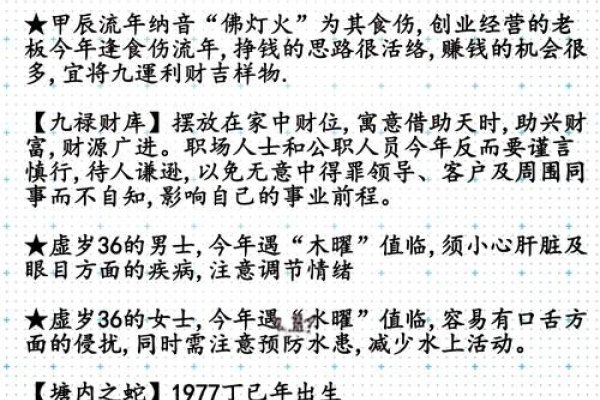 ★甲辰流年纳音“佛灯火”为其食伤,创业经营的老
板今年逢食伤流年,挣钱的思路很活络,赚钱的机会很
多,宜将九運利财吉祥物.
【九禄财库】摆放在家中财位,寓意借助天时,助兴财
富,财源广进。职场人士和公职人员今年反而要谨言
慎行,待人谦逊,以免无意中得罪领导、客户及周围同
事而不自知,影响自己的事业前程。
★虚岁36的男士,今年遇“木曜”值临,须小心肝脏及
眼目方面的疾病,注意调节情绪
★虚岁36的女士,今年遇“水曜”值临,容易有口舌方
面的侵扰,同时需注意预防水患,减少水上活动。
【塘内之蛇】1977丁巳年出生